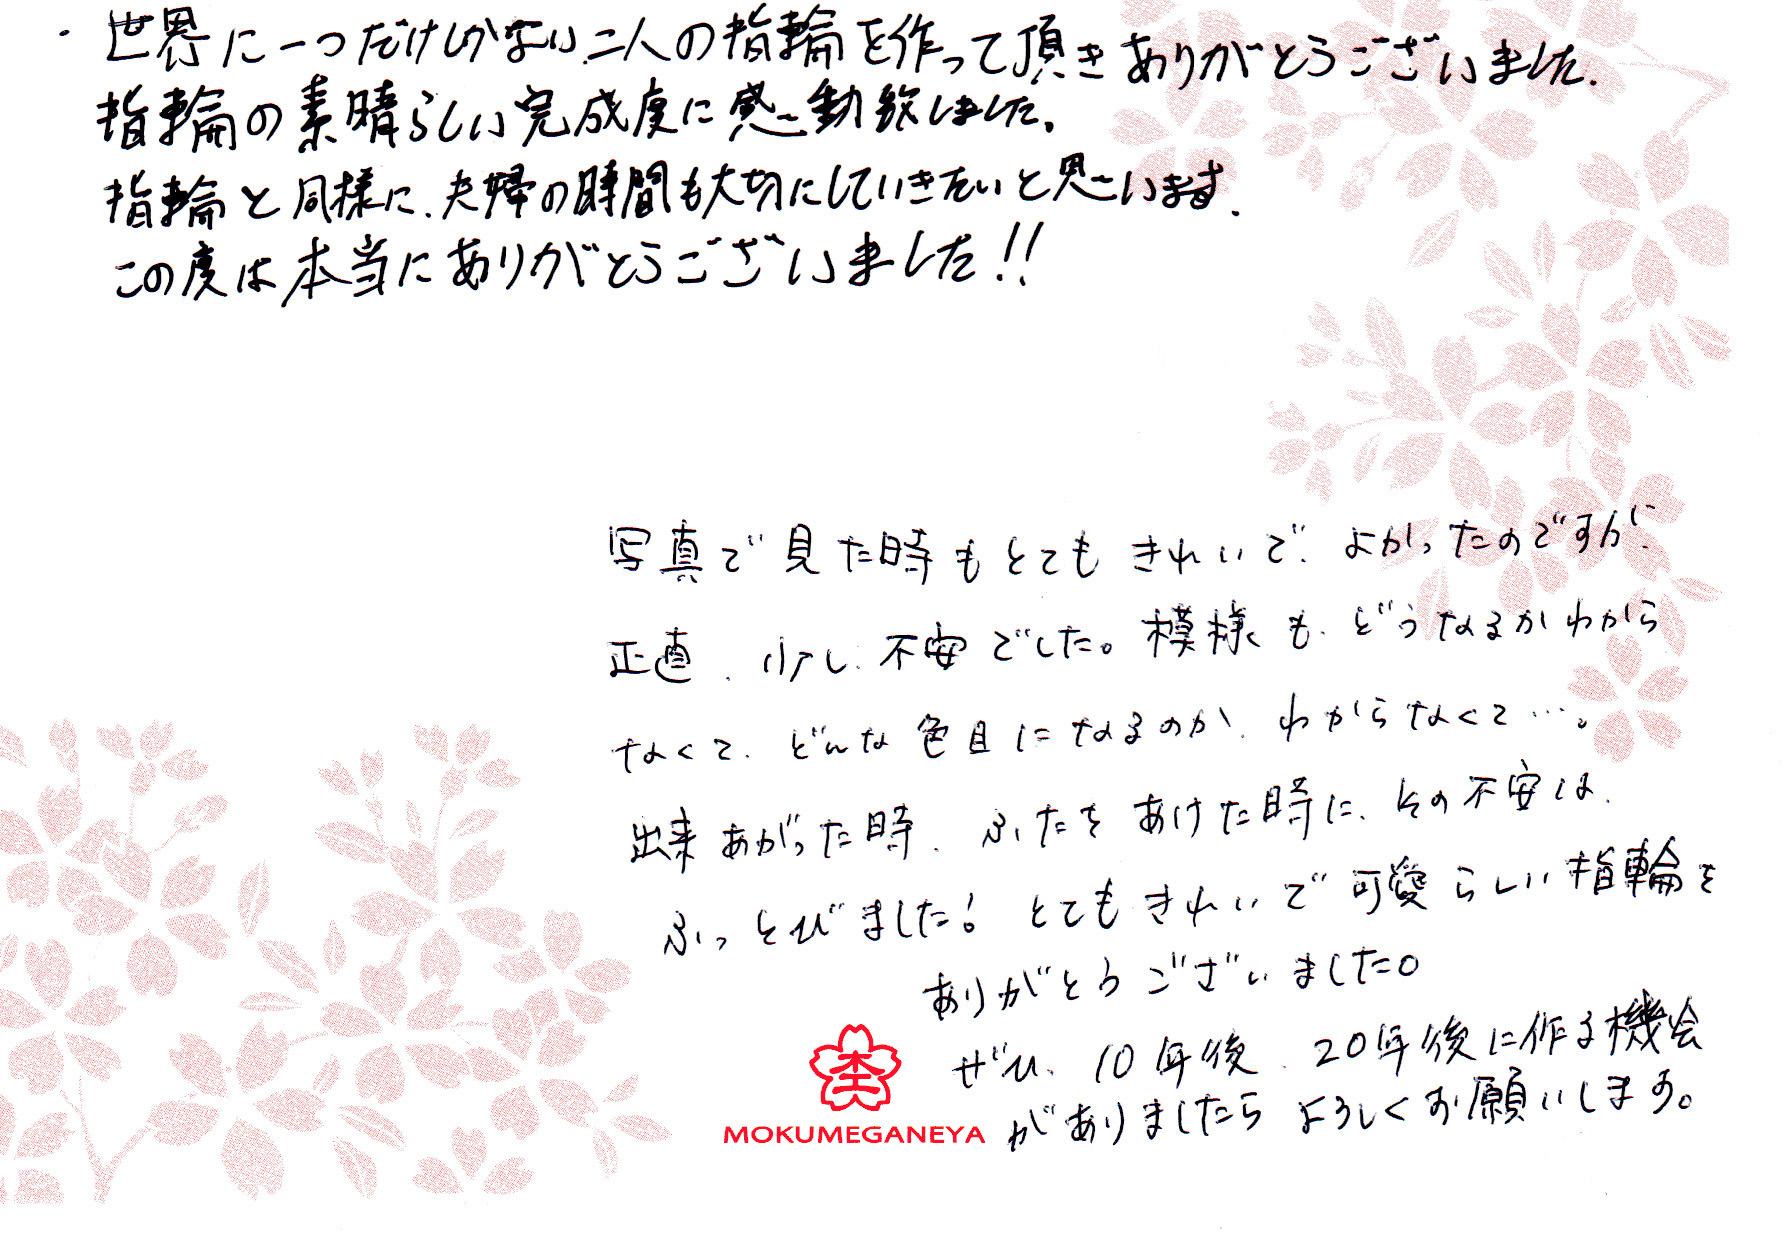 ・世界に一つだけしかない二人の指輪を作って頂きありがとうございました.
指輪の素晴らしい完成度に感動致しました。
指輪と同様に、夫婦の時間も大切にしていきたいと思います.
この度は本当にありがとうございました!!
写真で見た時もとてもきれいで、よかったのですが、
正直、少し、不安でした。模様も、どうなるかわから
なくて、どんな色目になるのか、わからなくて…。
出来あがった時、ふたをあけた時に、その不安は、
ふっとびました! とてもきれいで可愛らしい指輪を
ありがとうございました。
ぜひ、10年後、20年後に作る機会
がありましたらよろしくお願いします。
杢
MOKUMEGANEYA